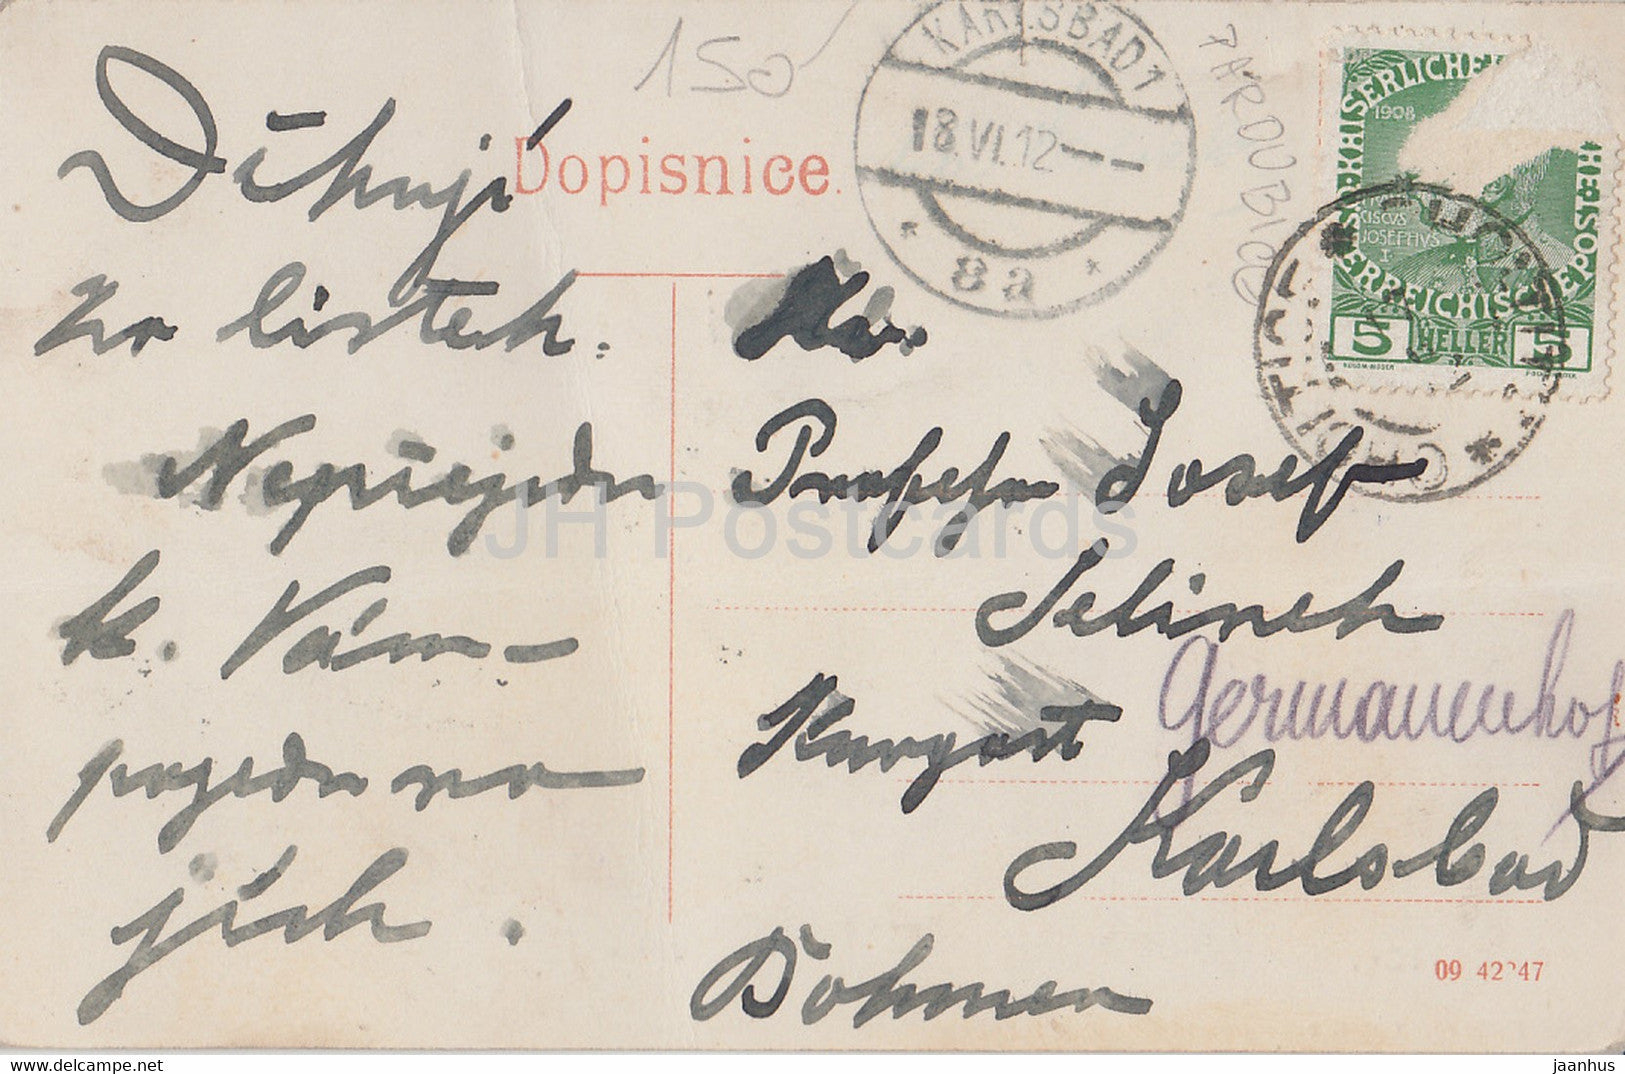 150
KARLSBAD 1
18.VI.12
8a
PARDUBICE
KAISERLICHE
1908
JOSEPHUS
I
ÖSTERREICHISCHE POST
5 HELLER 5
Dopisnice.
Děkuji
za lístek.
Nepřijedu
k. Vám-
pojedu na
jich.
Professor Josef
Jelinek
Kurgast
Germanenhof
Karlsbad
Böhmen
09 42247
JH Postcards
www.delcampe.net
jaanhus